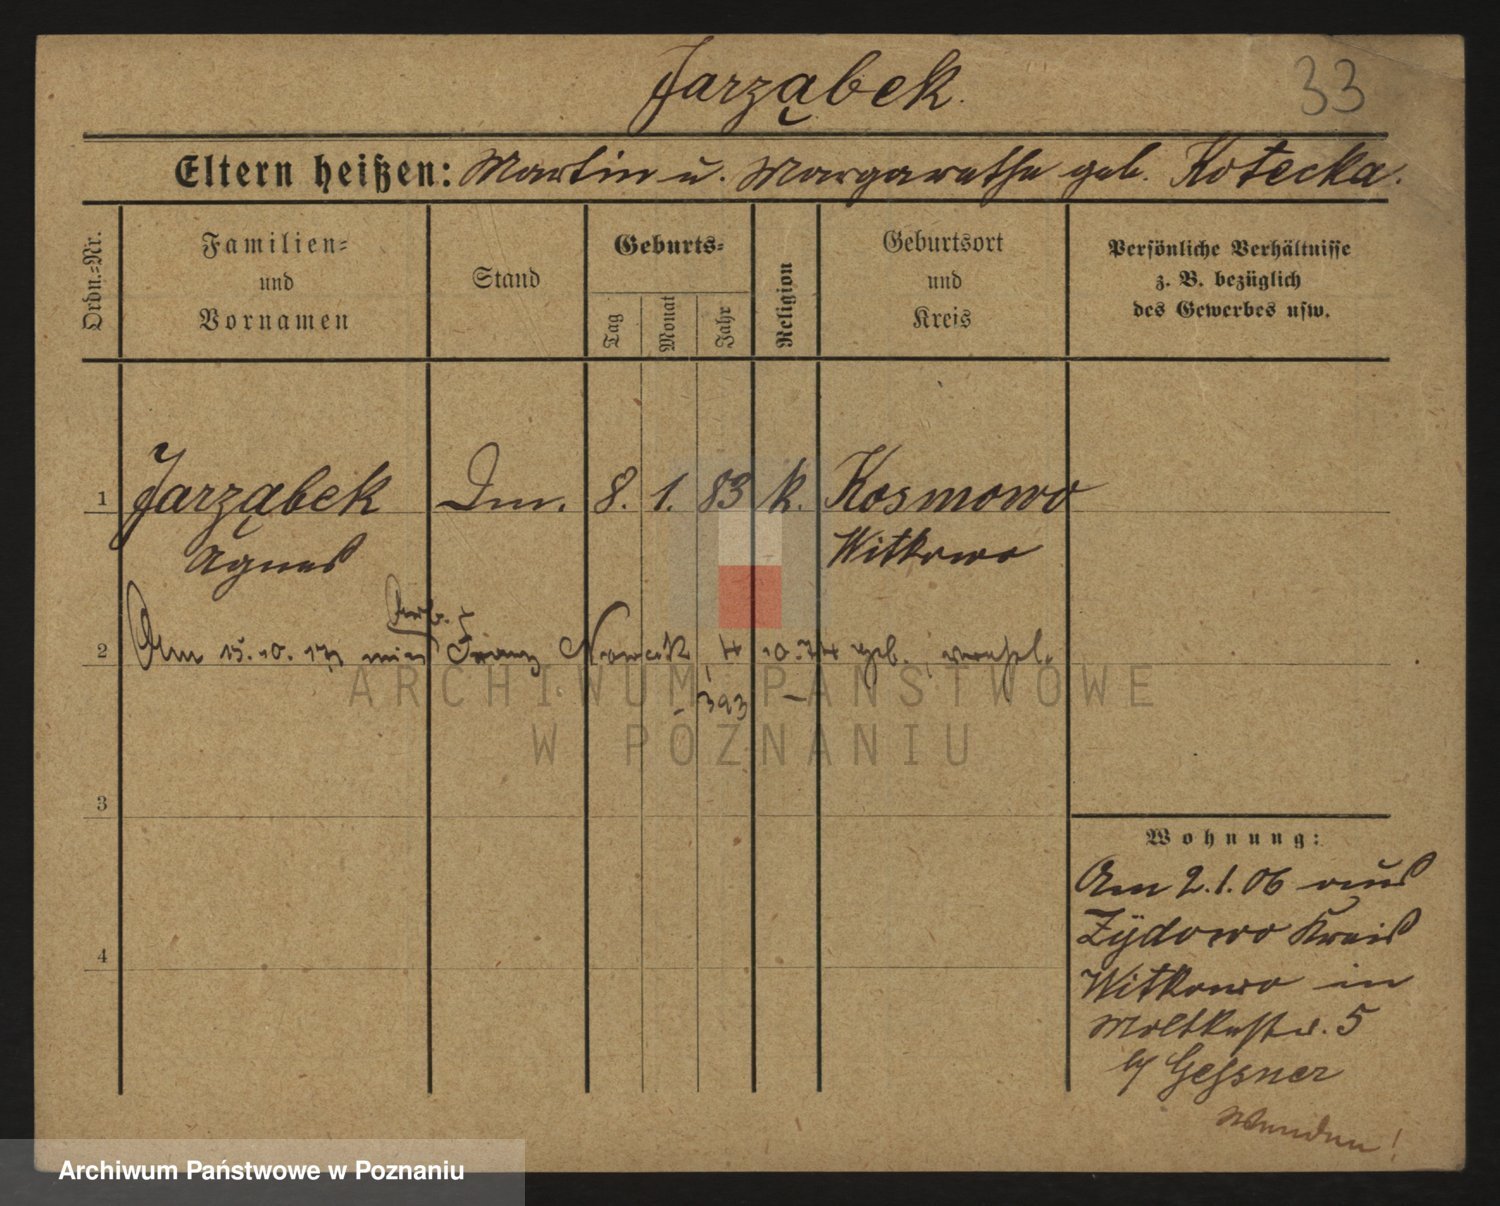 33
Jarząbek.
Eltern heißen: Martin u. Margarethe geb. Kotecka.
Ordn.-Nr.
Familien- und Vornamen
Stand
Geburts-
Tag
Monat
Jahr
Religion
Geburtsort und Kreis
Persönliche Verhältnisse
z. B. bezüglich
des Gewerbes usw.
1 Jarząbek 8. 1. 83 k. Kosmowo
Agnes Witkowo
Arb.
2 Am 15.10. mit Franz 10.74 geb. verehel.
3
4
Wohnung:
Am 2.1.06 aus
Zÿdowo Kreis
Witkowo in
Moltkestr. 5
b/ Geßner
Wenden!
ARCHIWUM PAŃSTWOWE
W POZNANIU
Archiwum Państwowe w Poznaniu